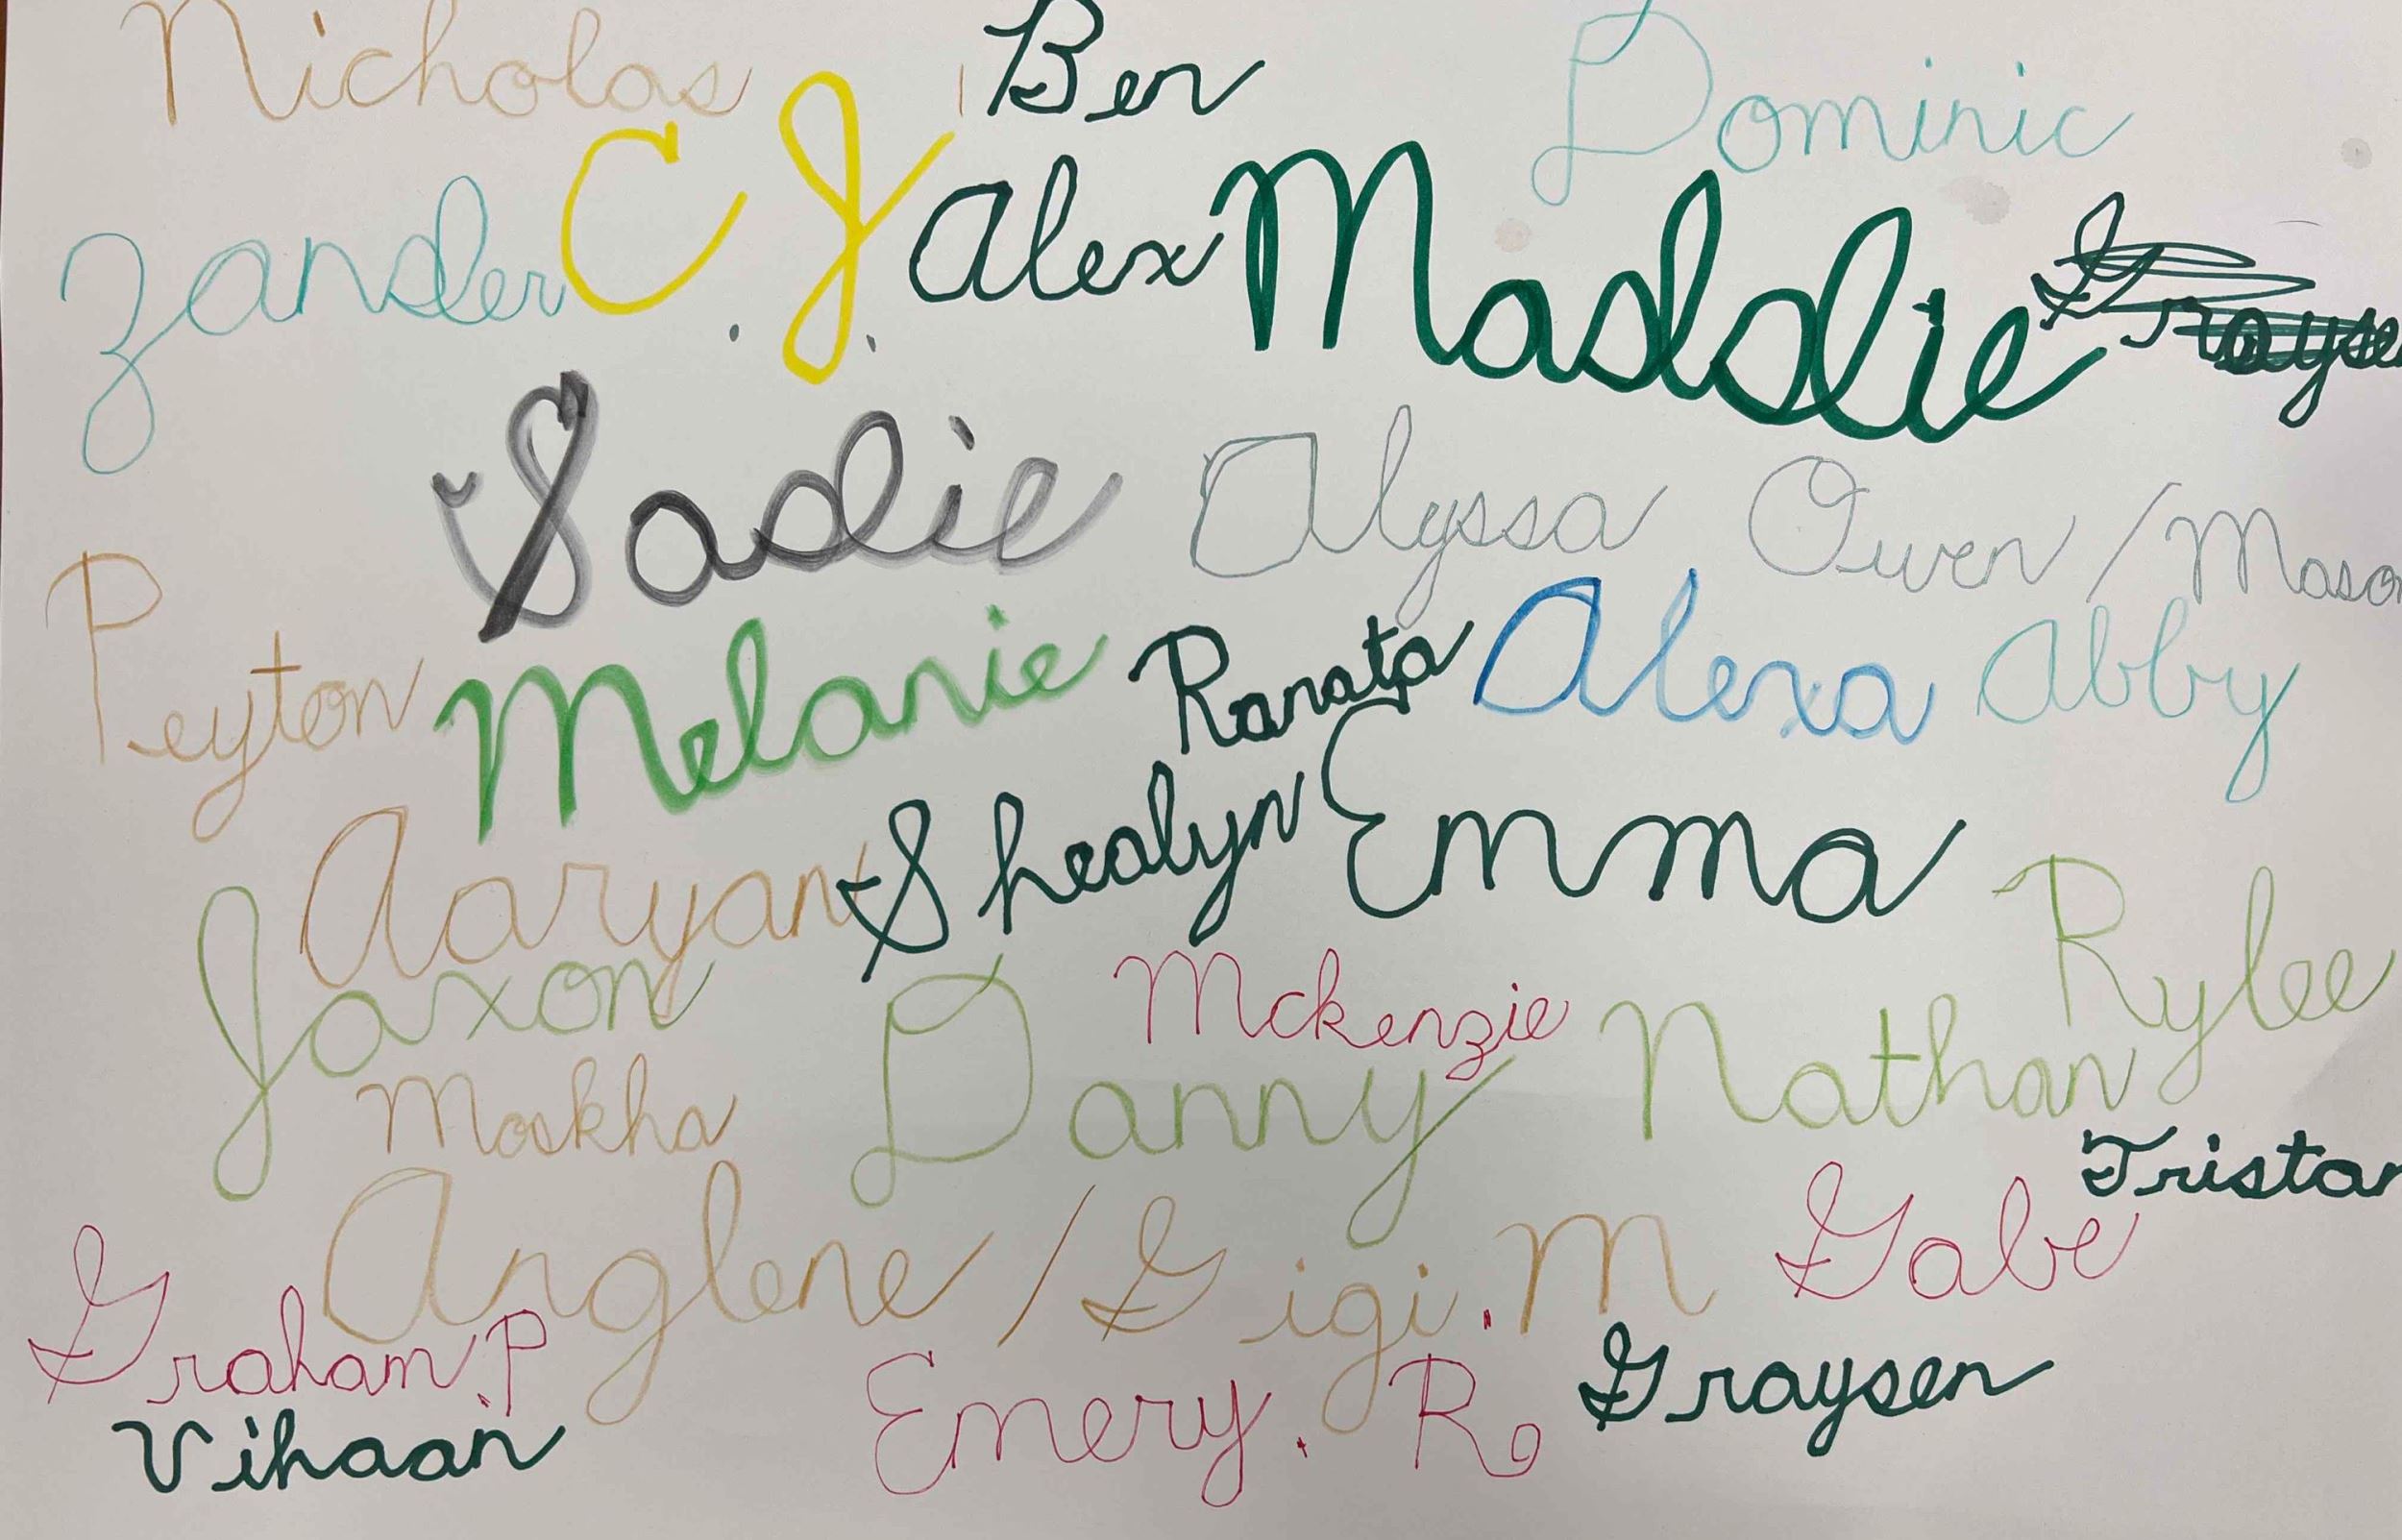 Nicholas Ben Dominic
Zander C.J. Alex Maddie Grayse
Sadie Alyssa Owen / Mason
Peyton Melanie Ranata Alexa Abby
Aaryan Shealyn Emma Rylee
Jaxon Mckenzie Nathan
Mokha Danny Tristan
Anglene / Gigi.M Gabe
Graham.P Emery. R Graysen
Vihaan